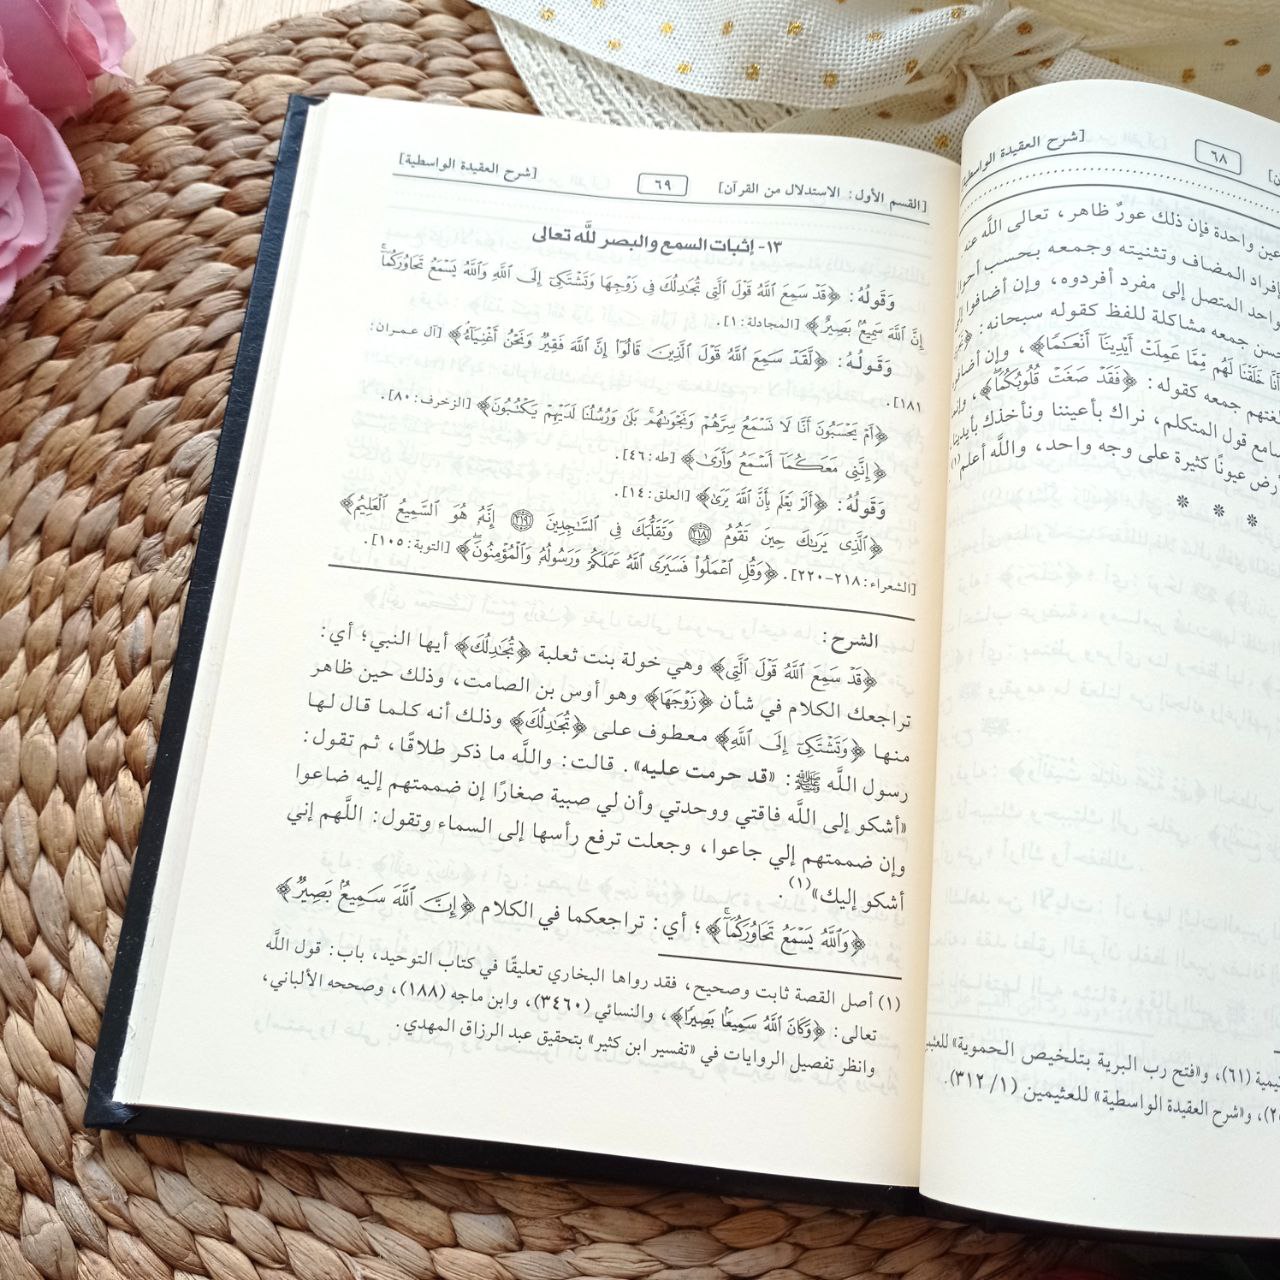 ٦٨
[شرح العقيدة الواسطية]
عين واحدة فإن ذلك عورٌ ظاهر، تعالى اللَّه عنه
إفراد المضاف وتثنيته وجمعه بحسب أحوال
واحد المتصل إلى مفرد أفردوه، وإن أضافوا إلى
حسن جمعه مشاكلة للفظ كقوله سبحانه:
أَنَّا خَلَقْنَا لَهُم مِّمَّا عَمِلَتْ أَيْدِينَآ أَنْعَٰمًا﴾، وإن
لغتهم جمعه كقوله: ﴿فَقَدْ صَغَتْ قُلُوبُكُمَا﴾،
سامع قول المتكلم، نراك بأعيننا ونأخذك بأيدينا
أرض عيونًا كثيرة على وجه واحد، واللَّه أعلم(١)
* * *
تيمية (٦١)، و«فتح رب البرية بتلخيص الحموية»
و«شرح العقيدة الواسطية» للعثيمين (١/ ٣١٢).
[القسم الأول: الاستدلال من القرآن] ٦٩ [شرح العقيدة الواسطية]
١٣- إثبات السمع والبصر للَّه تعالى
وَقَولُهُ: ﴿قَدْ سَمِعَ ٱللَّهُ قَوْلَ ٱلَّتِى تُجَٰدِلُكَ فِى زَوْجِهَا وَتَشْتَكِىٓ إِلَى ٱللَّهِ وَٱللَّهُ يَسْمَعُ تَحَاوُرَكُمَآ ۚ
إِنَّ ٱللَّهَ سَمِيعٌۢ بَصِيرٌ﴾ [المجادلة: ١].
وَقَولُهُ: ﴿لَّقَدْ سَمِعَ ٱللَّهُ قَوْلَ ٱلَّذِينَ قَالُوٓا۟ إِنَّ ٱللَّهَ فَقِيرٌ وَنَحْنُ أَغْنِيَآءُ﴾ [آل عمران:
١٨١].
﴿أَمْ يَحْسَبُونَ أَنَّا لَا نَسْمَعُ سِرَّهُمْ وَنَجْوَىٰهُم ۚ بَلَىٰ وَرُسُلُنَا لَدَيْهِمْ يَكْتُبُونَ﴾ [الزخرف: ٨٠].
﴿إِنَّنِى مَعَكُمَآ أَسْمَعُ وَأَرَىٰ﴾ [طه: ٤٦].
وَقَولُهُ: ﴿أَلَمْ يَعْلَم بِأَنَّ ٱللَّهَ يَرَىٰ﴾ [العلق: ١٤].
﴿ٱلَّذِى يَرَىٰكَ حِينَ تَقُومُ ٢١٨ وَتَقَلُّبَكَ فِى ٱلسَّٰجِدِينَ ٢١٩ إِنَّهُۥ هُوَ ٱلسَّمِيعُ ٱلْعَلِيمُ﴾
[الشعراء: ٢١٨-٢٢٠]. ﴿وَقُلِ ٱعْمَلُوا۟ فَسَيَرَى ٱللَّهُ عَمَلَكُمْ وَرَسُولُهُۥ وَٱلْمُؤْمِنُونَ ۖ﴾ [التوبة: ١٠٥].
الشرح:
﴿قَدْ سَمِعَ ٱللَّهُ قَوْلَ ٱلَّتِى﴾ وهي خولة بنت ثعلبة ﴿تُجَٰدِلُكَ﴾ أيها النبي؛ أي:
تراجعك الكلام في شأن ﴿زَوْجِهَا﴾ وهو أوس بن الصامت، وذلك حين ظاهر
منها ﴿وَتَشْتَكِىٓ إِلَى ٱللَّهِ﴾ معطوف على ﴿تُجَٰدِلُكَ﴾ وذلك أنه كلما قال لها
رسول اللَّه ﷺ: «قد حرمت عليه». قالت: واللَّه ما ذكر طلاقًا، ثم تقول:
«أشكو إلى اللَّه فاقتي ووحدتي وأن لي صبية صغارًا إن ضممتهم إليه ضاعوا
وإن ضممتهم إلي جاعوا، وجعلت ترفع رأسها إلى السماء وتقول: اللَّهم إني
أشكو إليك»(١).
﴿وَٱللَّهُ يَسْمَعُ تَحَاوُرَكُمَآ ۚ﴾؛ أي: تراجعكما في الكلام ﴿إِنَّ ٱللَّهَ سَمِيعٌۢ بَصِيرٌ﴾
(١) أصل القصة ثابت وصحيح، فقد رواها البخاري تعليقًا في كتاب التوحيد، باب: قول اللَّه
تعالى: ﴿وَكَانَ ٱللَّهُ سَمِيعًۢا بَصِيرًا﴾، والنسائي (٣٤٦٠)، وابن ماجه (١٨٨)، وصححه الألباني،
وانظر تفصيل الروايات في «تفسير ابن كثير» بتحقيق عبد الرزاق المهدي.